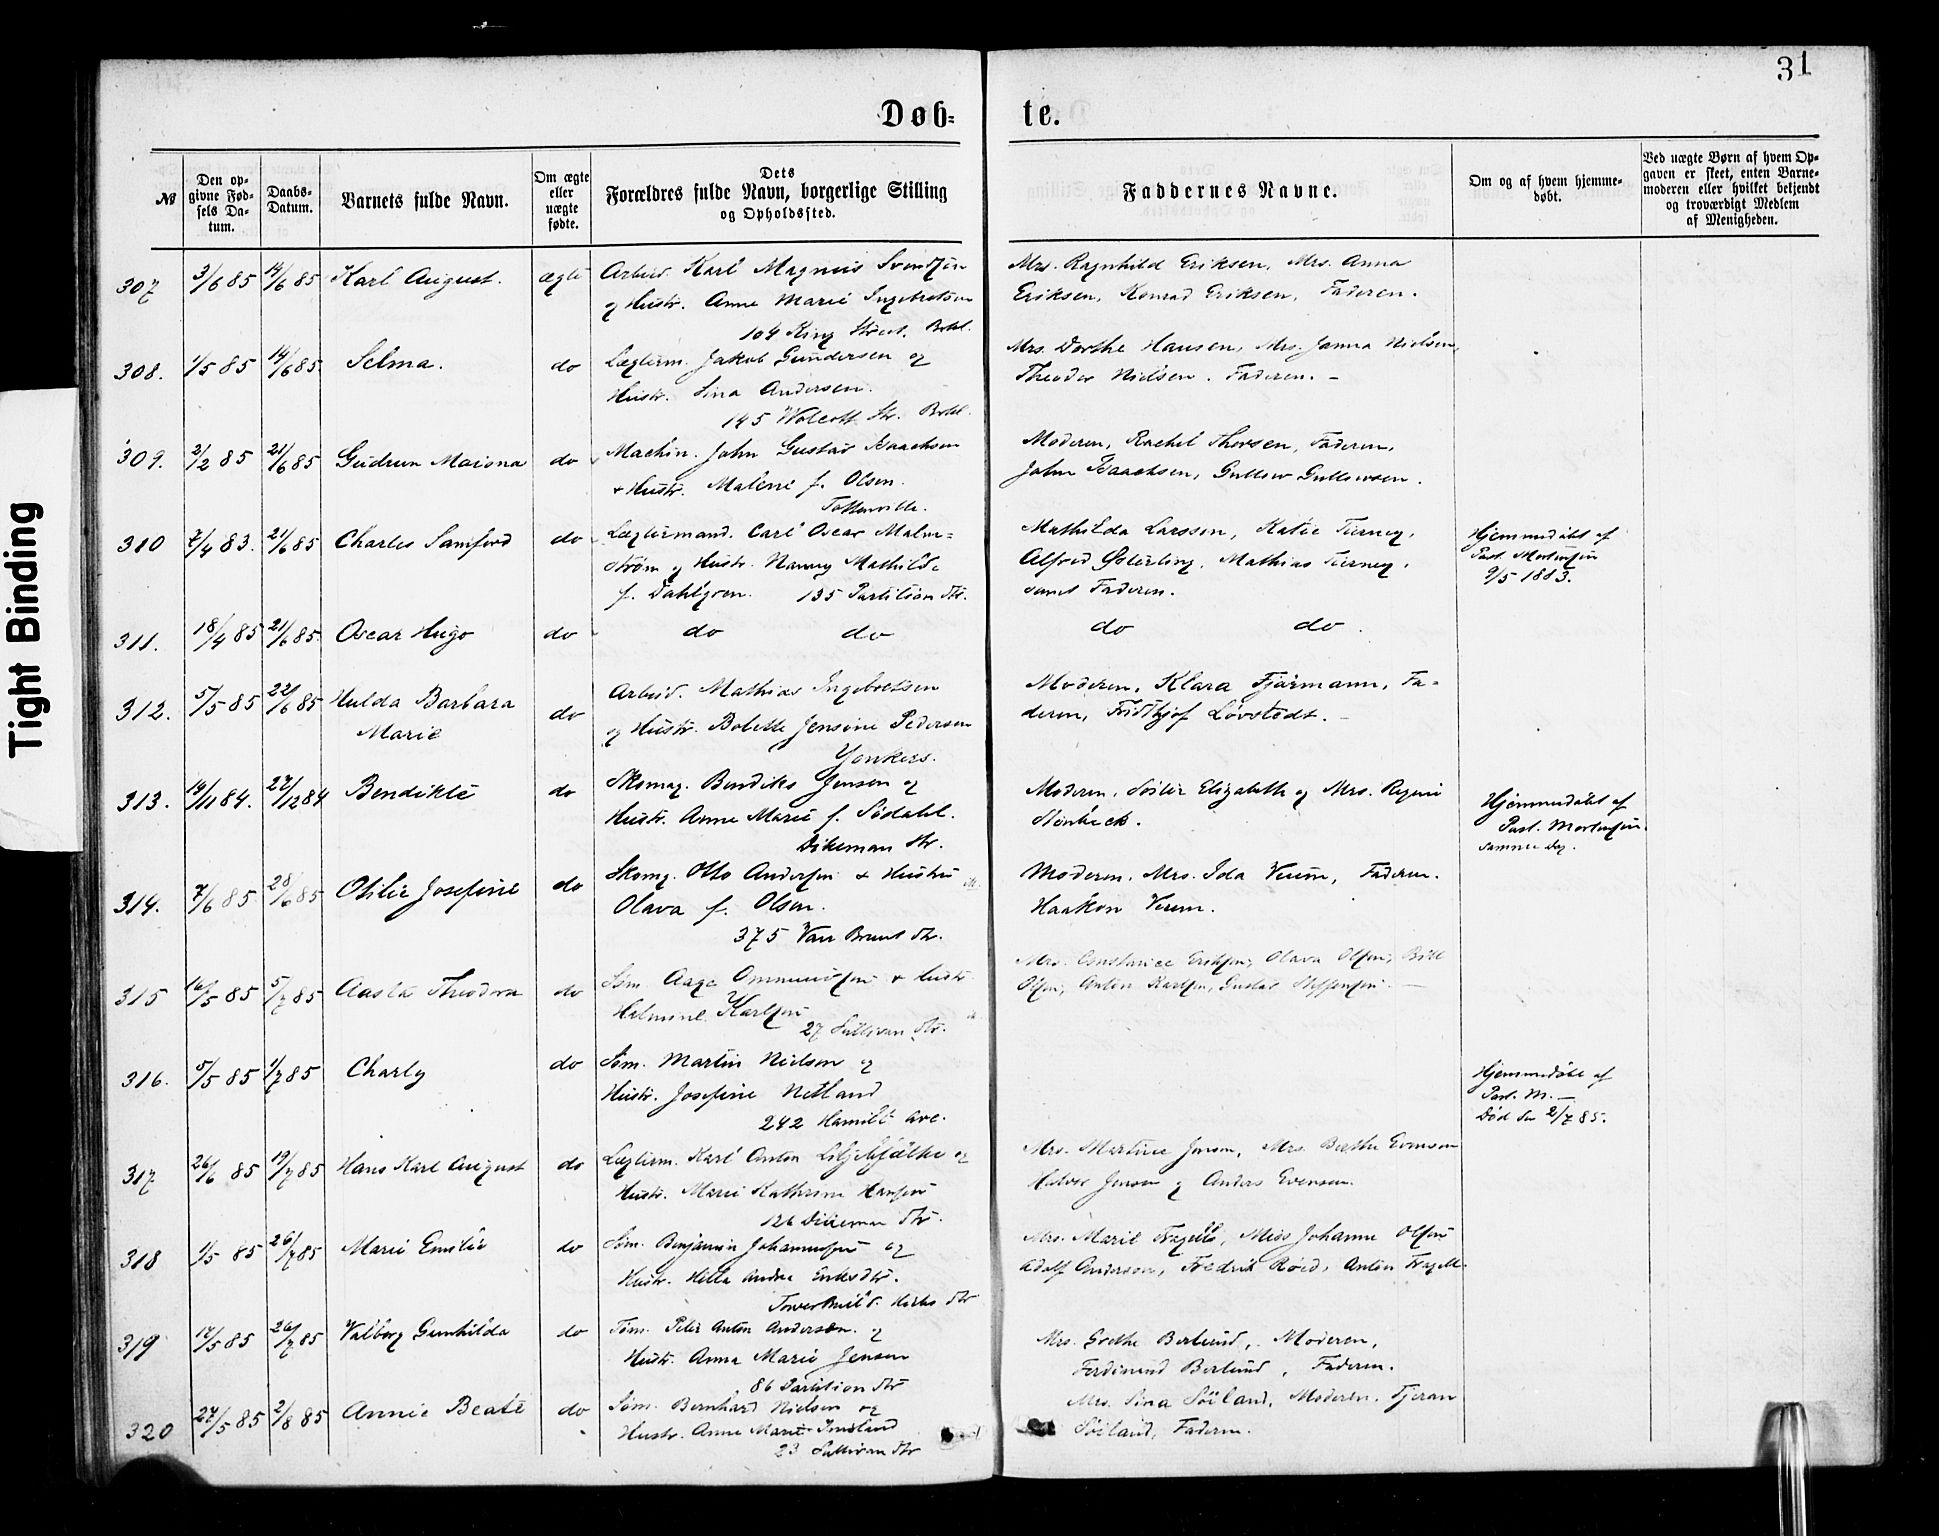 31
Døb=
te.
№
Den op-
givne Fød-
sels Da-
tum.
Daabs-
Datum.
Barnets fulde Navn.
Om ægte
eller
uægte
fødte.
Dets
Forældres fulde Navn, borgerlige Stilling
og Opholdssted.
Faddernes Navne.
Om og af hvem hjemme-
døbt.
Ved uægte Børn af hvem Op-
gaven er skeet, enten Barne-
moderen eller hvilket bekjendt
og troværdigt Medlem
af Menigheden.
307 3/6 85 14/6 85 Karl August. ægte Arbeid. Karl Magnus Svendsen
og Hustr. Anne Marie Ingebretsen
104 King Street. Brkl.
Mrs. Ragnhild Eriksen, Mrs. Anna
Eriksen, Konrad Eriksen, Faderen.
308. 1/5 85 14/6 85 Selma. do Lægterm. Jakob Gundersen og
Hustr. Sina Andersen.
145 Wolcott Str. Brkl.
Mrs. Dorthe Hansen, Mrs. Janna Nielsen,
Theodor Nielsen. Faderen. –
309. 2/2 85 21/6 85 Gudrun Maiona do Machin. John Gustav Isaachsen
+ Hustr. Maline f. Olsen.
Tottenville.
Moderen, Rachel Thorsen, Faderen,
John Isaachsen, Guttow Guttowsen.
310 7/4 83. 21/6 85 Charles Samford do Lægtermand. Carl Oscar Malm=
strøm og Hustr. Nanny Mathilde
f. Dahlgren. 135 Partition Str.
Mathilda Larsson, Katie Tierney,
Alfred Østerling, Mathias Tierney,
samt Faderen.
Hjemmedøbt af
Past. Mortensen
9/5 1883.
311. 18/4 85 21/6 85. Oscar Hugo do do do
do do.
312. 5/5 85 22/6 85 Hulda Barbara
Marie do
Arbeid. Mathias Ingebretsen
og Hustr. Bolette Jensine Pedersen
Yonkers.
Moderen, Klara Fjärmann, Fa-
deren, Fridthjof Løvstedt. –
313. 14/11 84. 27/12 84 Bendikte do Skomag. Bendiks Jensen og
Hustr. Anne Marie f. Sødahl.
Dikeman Str.
Moderen, Søster Elizabeth og Mrs. Regine
Stenbeck.
Hjemmedøbt af
Past. Mortensen.
samme Dag.
314. 7/6 85 28/6 85 Otilie Josefine do Skomg. Otto Andersen + Hustru
Olava f. Olsen.
375 Van Brunt Str.
Moderen, Mrs. Ida Verum, Faderen.
Haakon Verum.
315 16/5 85 5/7 85 Aasta Theodora do Søm. Aage Ommundsen + Hustr
Helmine Karlsen
27 Sullivan Str.
Mrs. Constance Eriksen, Olava Olsen,
Olsen, Anton Karlsen, Gustav Steffensen. –
316. 5/5 85 1/7 85 Charly do Søm. Martin Nielsen og
Hustr. Josefine Netland
242 Hamilt ave.
Hjemmedøbt af
Past. M. –
Død den 2/7 85.
317 26/6 85 19/7 85 Hans Karl August do Lægterm. Karl Anton Liljehjälke og
Hustr. Marie Kathrine Hansen
126 Dikeman Str.
Mrs. Martine Jensen, Mrs. Berthe Evensen
Halvor Jensen og Anders Evensen.
318 1/5 85 26/7 85 Marie Emilie do Søm. Benjamin Johannessen og
Hustr. Hilla Andrea Eriksdtr.
Tower Build. Hicks Str
Mrs. Marie Fragell, Miss Johanne Olsen
Adolf Anderson, Fredrik Røed, Anton Fragell.
319 17/5 85 26/7 85 Valborg Gunhilda do Tøm. Peter Anton Andersen. og
Hustr. Anna Marie Jensen
86 Partition Str
Mrs. Grethe Berlund, Moderen,
Ferdinand Berlund, Faderen.
320 27/5 85 2/8 85 Annie Beate do Søm. Bernhard Nielsen og
Hustr. Anne Marie
23 Sullivan Str
Mrs. Sina Søiland, Moderen. Tjeran
Søiland, Faderen.
Tight Binding